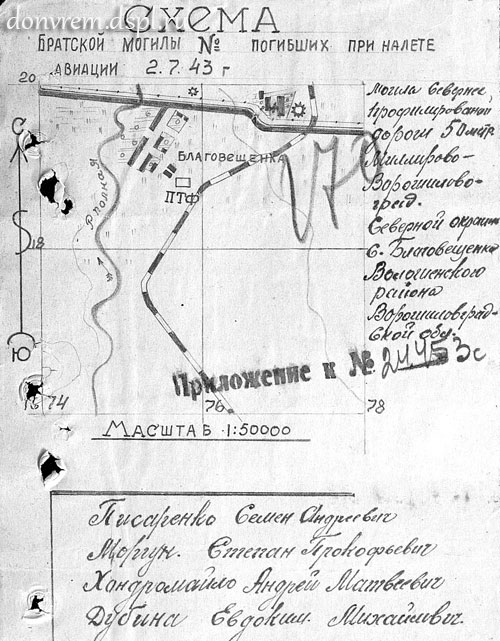 donvrem.dspl.ru
СХЕМА
БРАТСКОЙ МОГИЛЫ № ПОГИБШИХ ПРИ НАЛЕТЕ
АВИАЦИИ 2.7.43 г
20
18
74
76
78
С
Ю
Р. ПОЛНАЯ
БЛАГОВЕЩЕНКА
ПТФ
Могила Севернее
профилированой
дороги 50 метр.
Миллерово-
Ворошилово-
град.
Северной окраины
с. Благовещенка
Волошинского
района
Ворошиловград-
ской обл.
Приложение к № 21453с
МАСШТАБ 1:50000
Писаренко Семен Андреевич
Моргун. Степан Прокофьевич
Хандромайло Андрей Матвеевич
Дубина Евдоким. Михайлович.